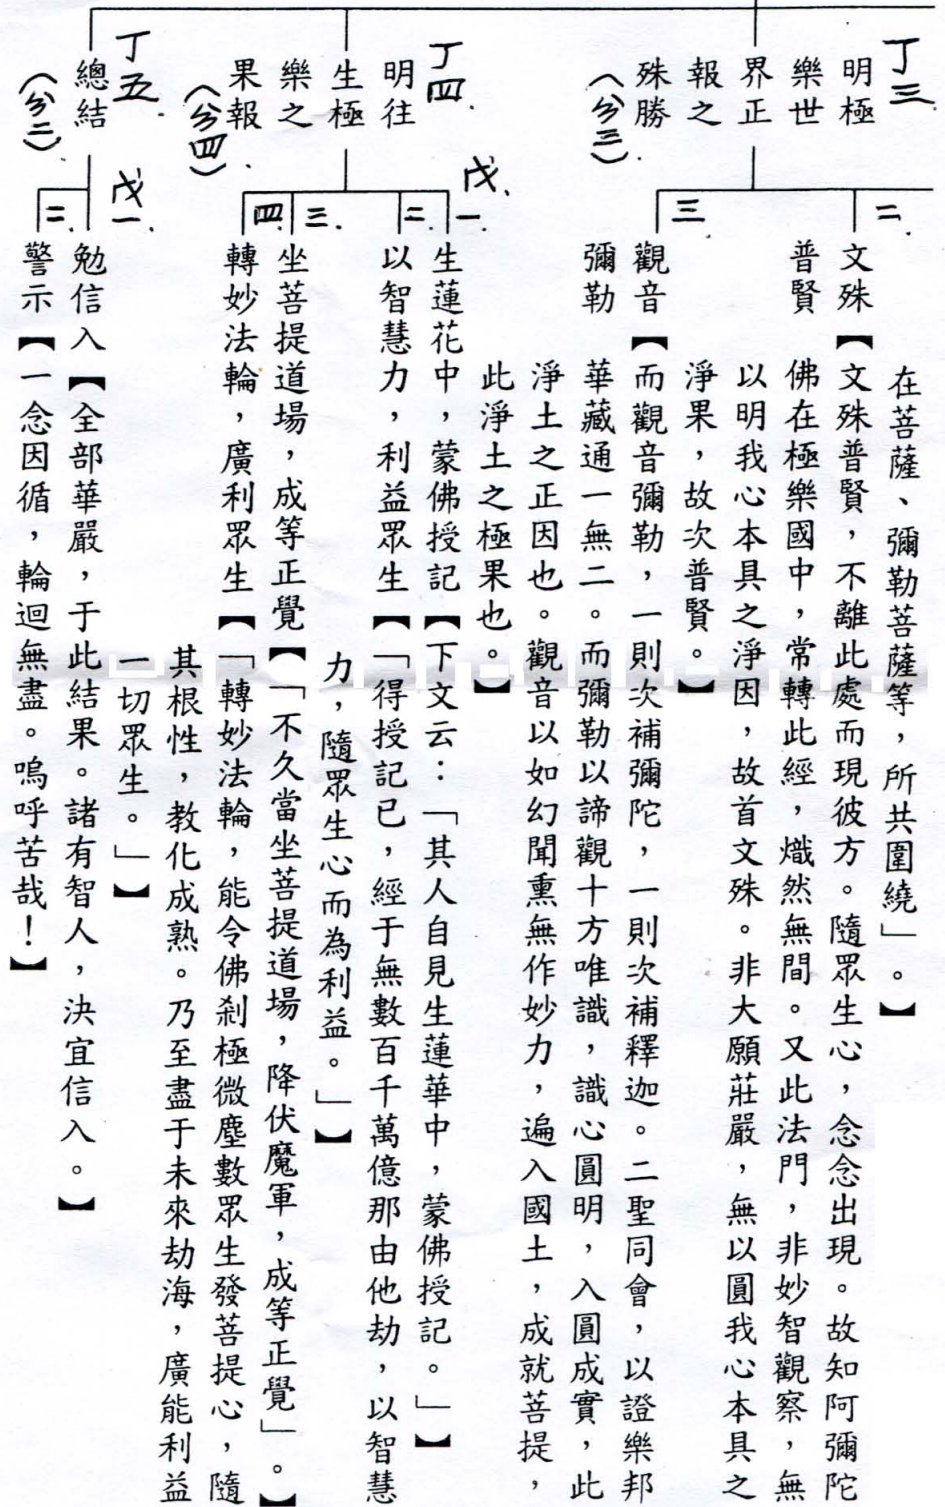 丁三
明極
樂世
界正
報之
殊勝
(分三).
二.
在菩薩、彌勒菩薩等，所共圍繞」。】
文殊【文殊普賢，不離此處而現彼方。隨眾生心，念念出現。故知阿彌陀
普賢　佛在極樂國中，常轉此經，熾然無間。又此法門，非妙智觀察，無
以明我心本具之淨因，故首文殊。非大願莊嚴，無以圓我心本具之
淨果，故次普賢。】
三.
觀音【而觀音彌勒，一則次補彌陀，一則次補釋迦。二聖同會，以證樂邦
彌勒　華藏通一無二。而彌勒以諦觀十方唯識，識心圓明，入圓成實，此
淨土之正因也。觀音以如幻聞熏無作妙力，遍入國土，成就菩提，
此淨土之極果也。】
丁四.
明往
生極
樂之
果報
(分四).
戊.
一.
生蓮花中，蒙佛授記【下文云：「其人自見生蓮華中，蒙佛授記。」】
二.
以智慧力，利益眾生【「得授記已，經于無數百千萬億那由他劫，以智慧
力，隨眾生心而為利益。」】
三.
坐菩提道場，成等正覺【「不久當坐菩提道場，降伏魔軍，成等正覺」。】
四.
轉妙法輪，廣利眾生【「轉妙法輪，能令佛剎極微塵數眾生發菩提心，隨
其根性，教化成熟。乃至盡于未來劫海，廣能利益
一切眾生。」】
丁五
總結
(分二).
戊一
勉信入【全部華嚴，于此結果。諸有智人，決宜信入。】
二.
警示【一念因循，輪迴無盡。嗚呼苦哉！】